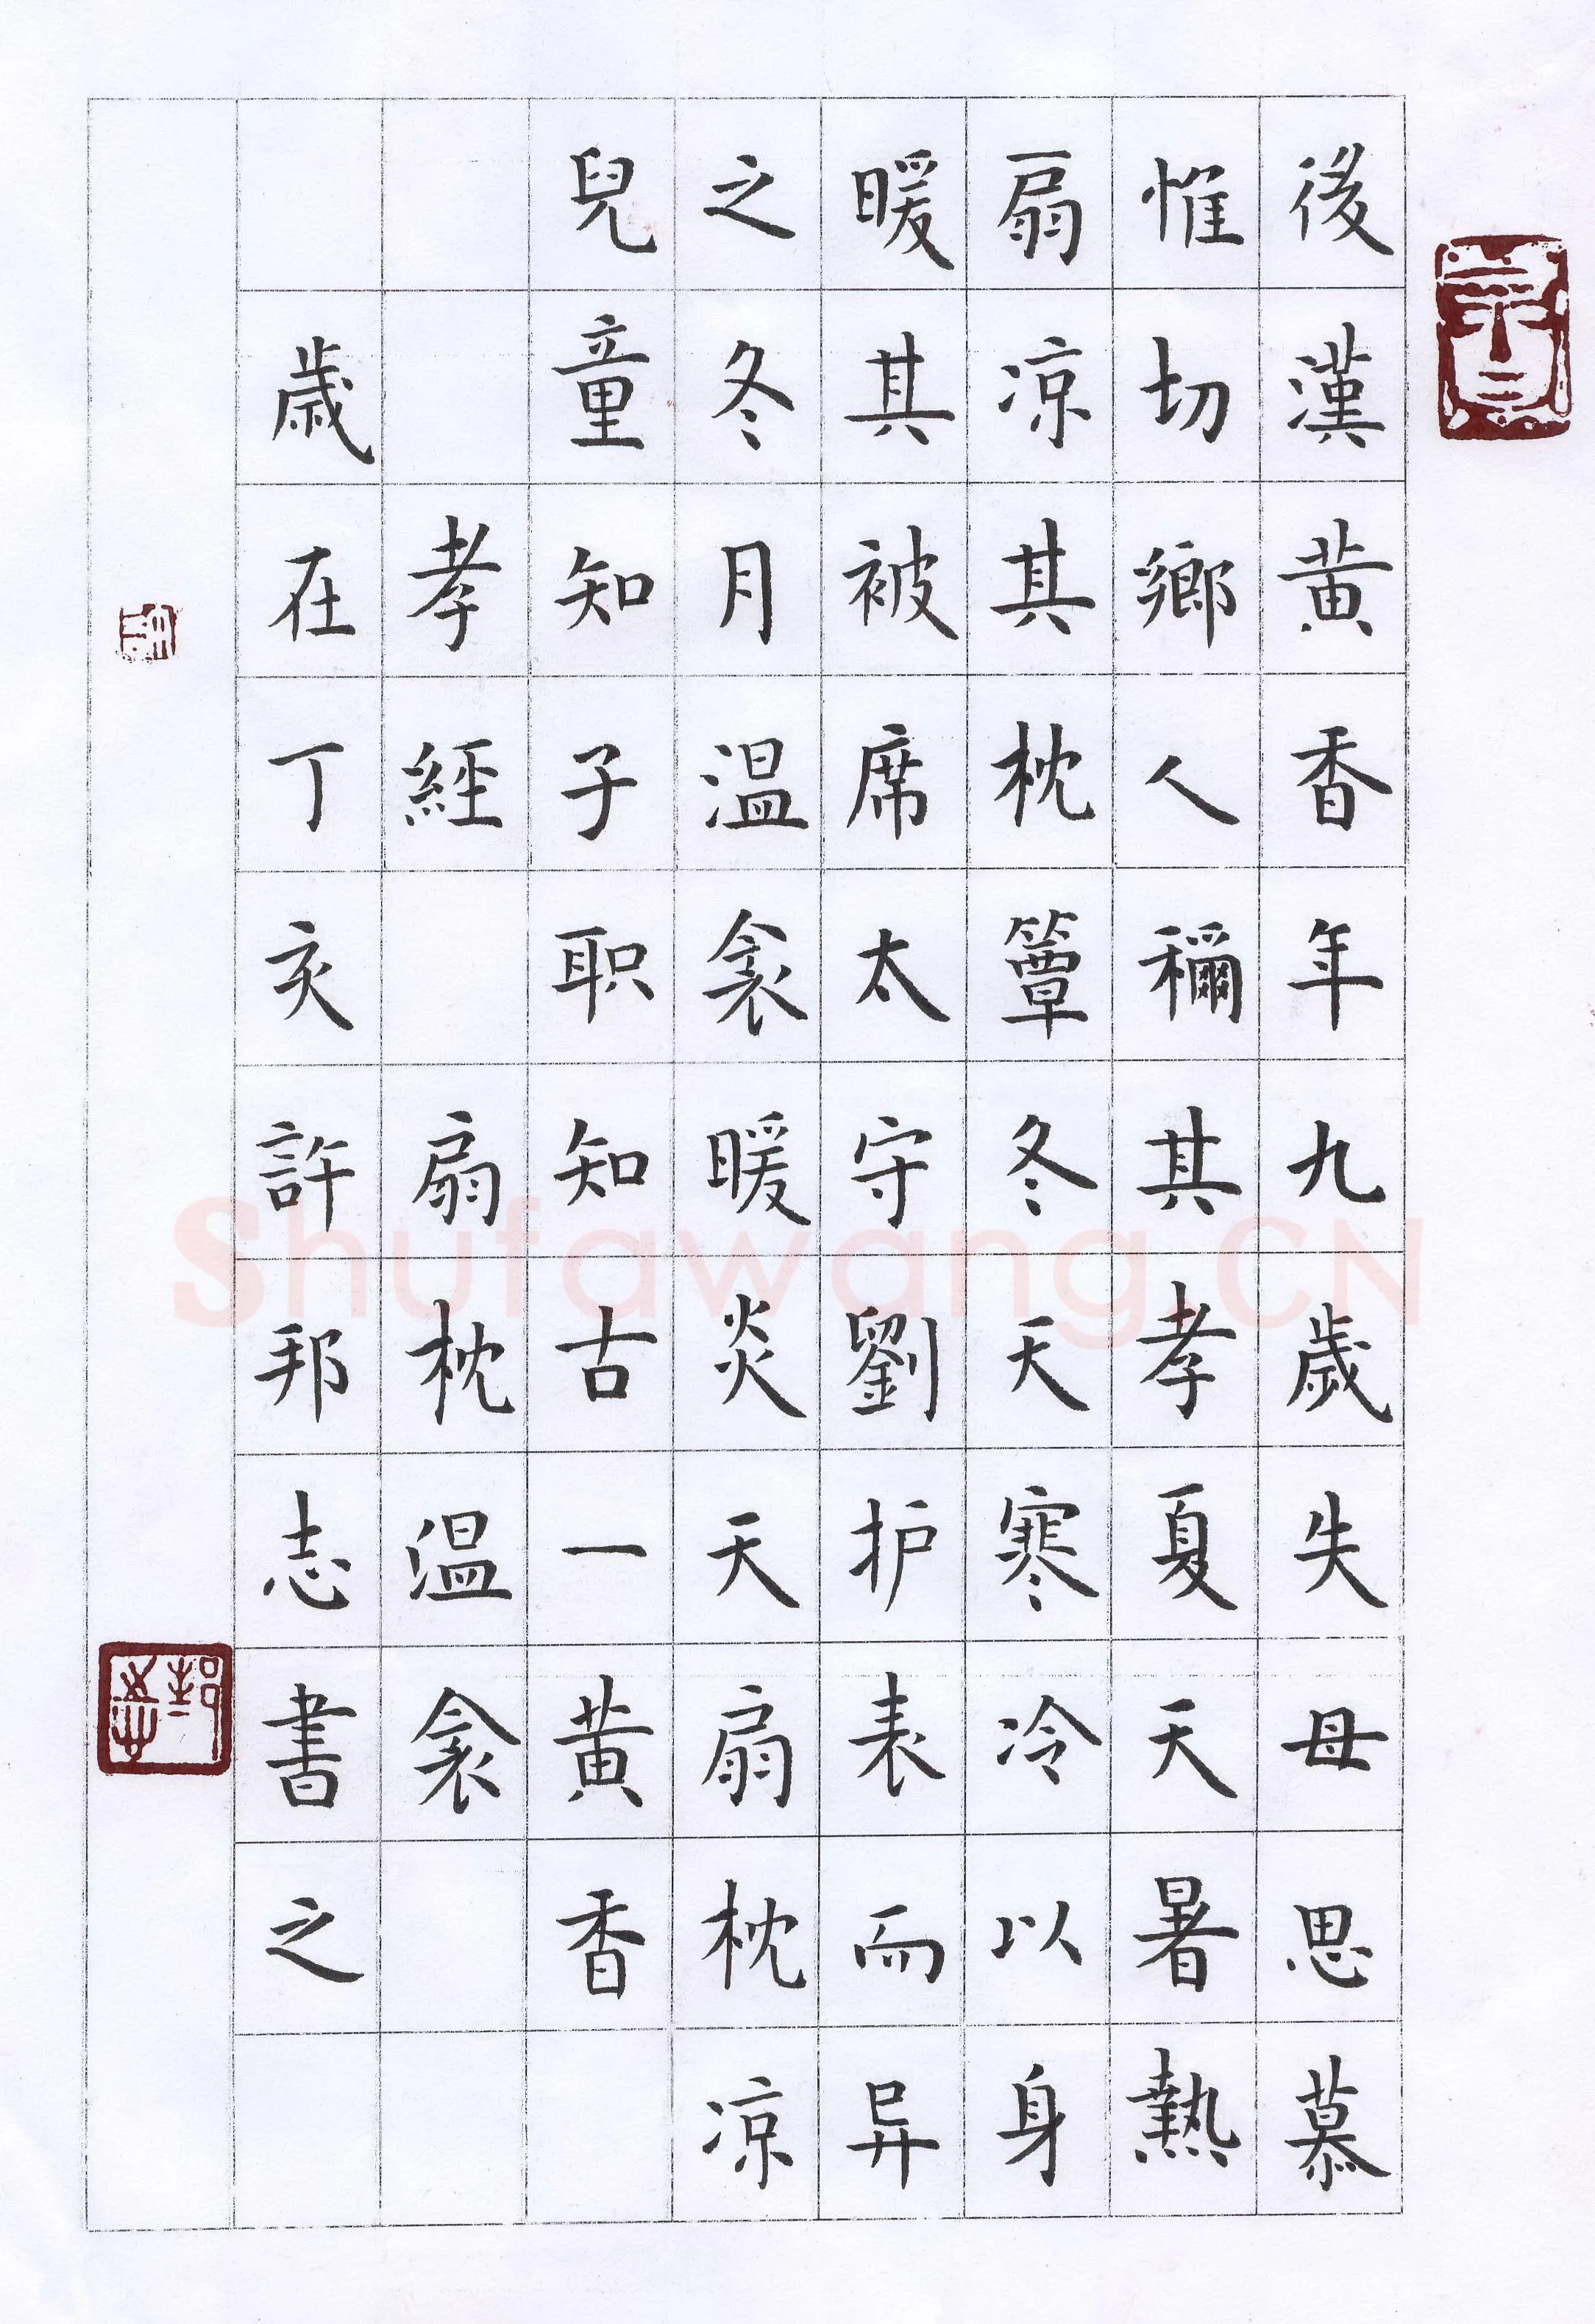 後漢黄香年九歲失母思慕
惟切鄉人穪其孝夏天暑熱
扇凉其枕簟冬天寒冷以身
暖其被席太守劉护表而异
之冬月温衾暖炎天扇枕凉
兒童知子职知古一黄香
孝經 扇枕温衾
歲在丁亥許邦志書之
Shufawang.CN